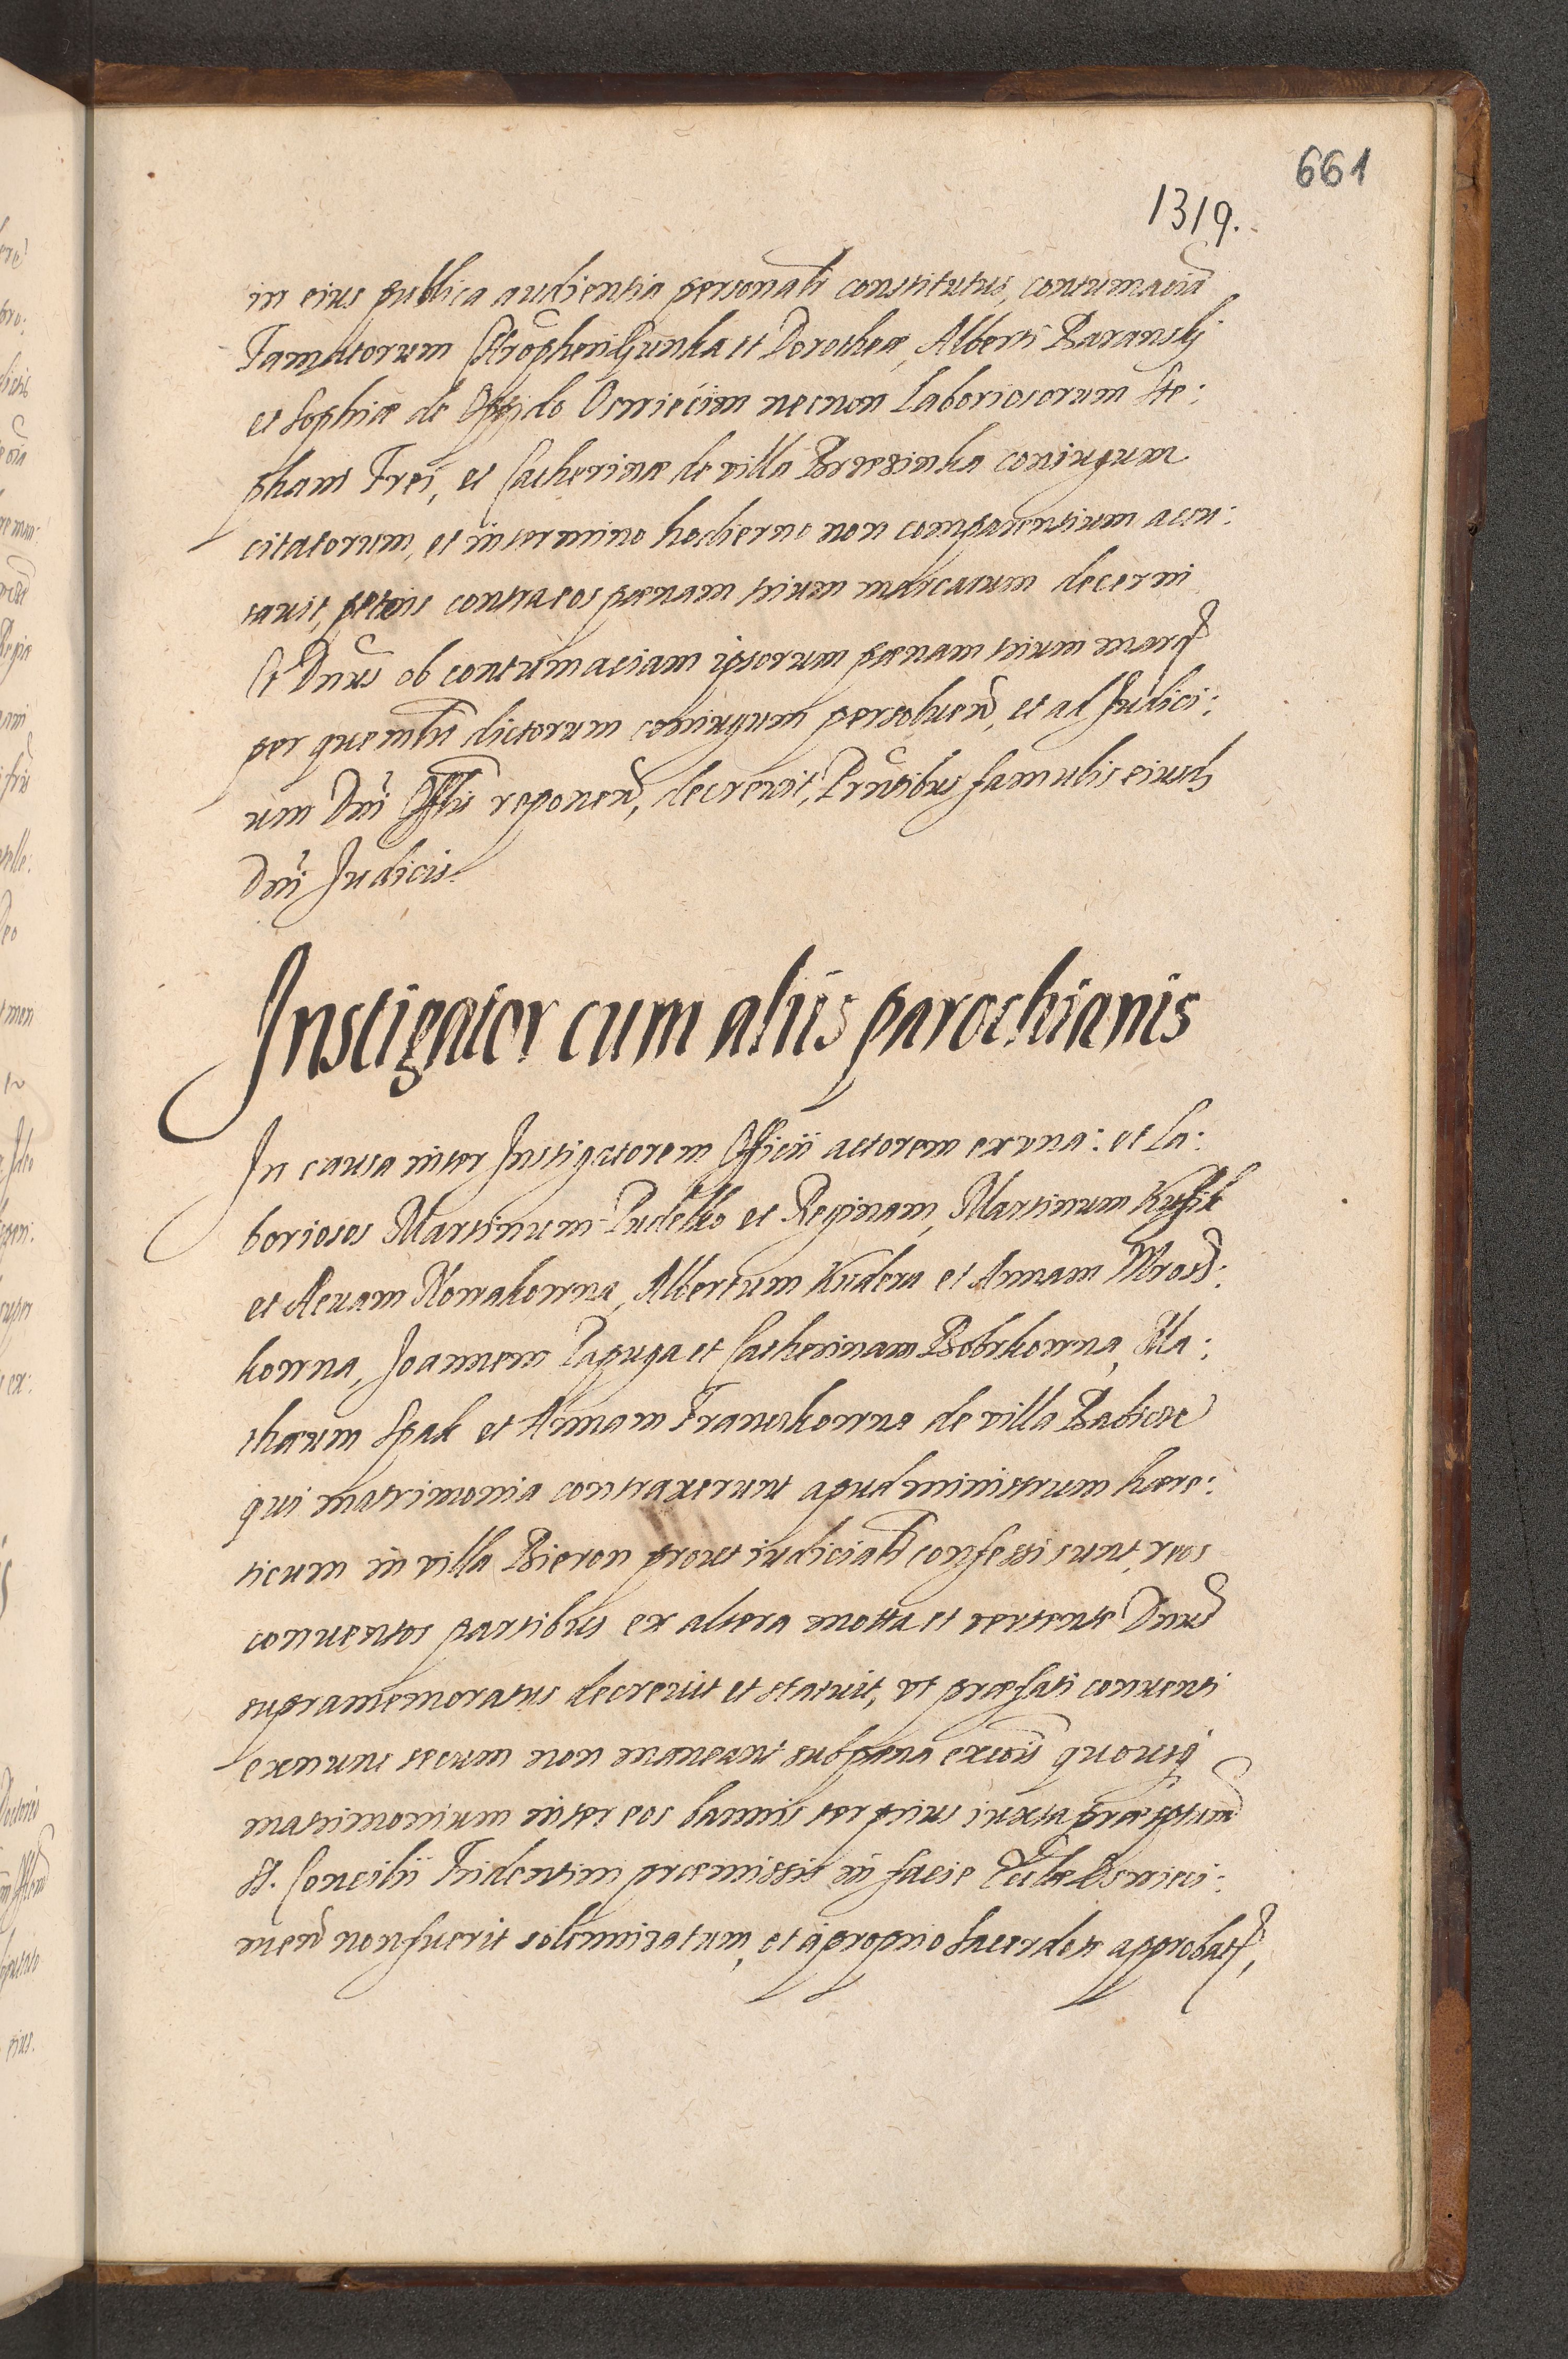 661
1319.
in eius publica audientia personalr constitutus, contumaciã
Famatorum Christopheri Gunka et Dorotheæ, Alberti Baranskÿ
et Sophiæ de Oppido Osmiecim necnon Laboriosorum Ste:
phani Frei, et Catherinæ de villa Brzezinka coniugum
citatorum, et in termino hodierno non comparentium accu:
sauit, petens contra eos pœnam trium marcarum decerni
Et Dnus ob contumaciam ipsorum pœnam trium marc
per quemlt dictorum coniugum persoluen, et ad Judici:
um Dni Offlis reponen, decreuit, Prntibus famulis eiusd
Dni Judicis.
Instigator cum aliis parochianis
In causa inter Instigatorem Officii actorem ex vna: et La:
boriosos Martinum Pudelko et Reginam, Martinum Kusik
et Aeuam Nowakowna, Albertum Kudera et Annam Mros:
kowna, Joannem Papuga et Catherinam Bobrkowna, Ma:
thæum Spak et Annam Franckowna de villa Babice
qui matrimonia contraxerunt apud ministrum hære:
ticum in villa Bieron prout iudicialr confessi sunt, reos
conuentos partibus ex altera mota et vertente Dnus
supramemoratus decreuit et statuit, vt præfati conuenti
exnunc secum non maneant sub pœna excois quousq
matrimonium inter eos bannis ter prius iuxta præsptum
S. Concilii Tridentini præmissis in facie Eccliæ Osmieci:
men non fuerit solemnizatum, et à proprio Sacerdote approbat,